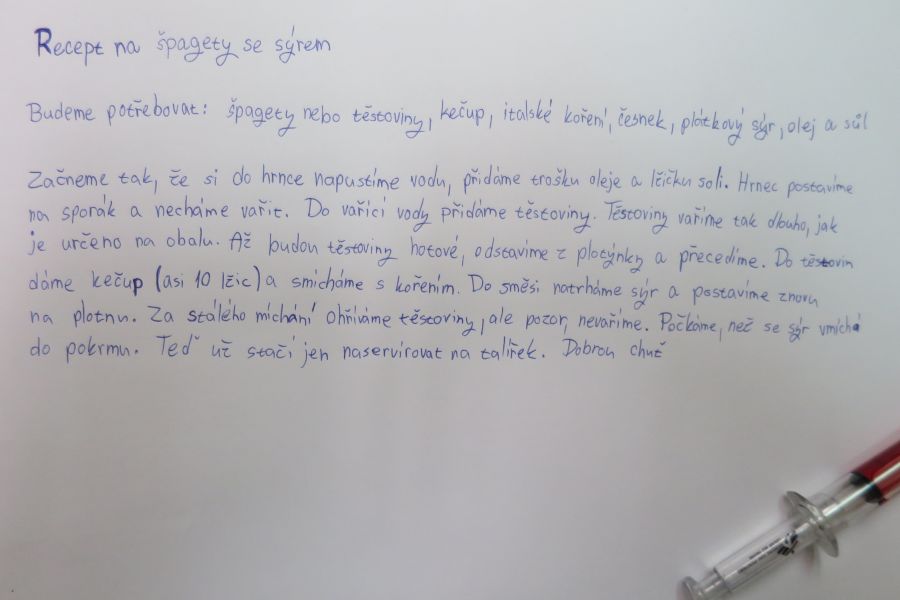 Recept na špagety se sýrem
Budeme potřebovat: špagety nebo těstoviny, kečup, italské koření, česnek, plátkový sýr, olej a sůl
Začneme tak, že si do hrnce napustíme vodu, přidáme trošku oleje a lžičku soli. Hrnec postavíme
na sporák a necháme vařit. Do vařící vody přidáme těstoviny. Těstoviny vaříme tak dlouho, jak
je určeno na obalu. Až budou těstoviny hotové, odstavíme z plotýnky a přecedíme. Do těstovin
dáme kečup (asi 10 lžic) a smícháme s kořením. Do směsi natrháme sýr a postavíme znovu
na plotnu. Za stálého míchání ohříváme těstoviny, ale pozor, nevaříme. Počkáme, než se sýr vmíchá
do pokrmu. Teď už stačí jen naservírovat na talířek. Dobrou chuť